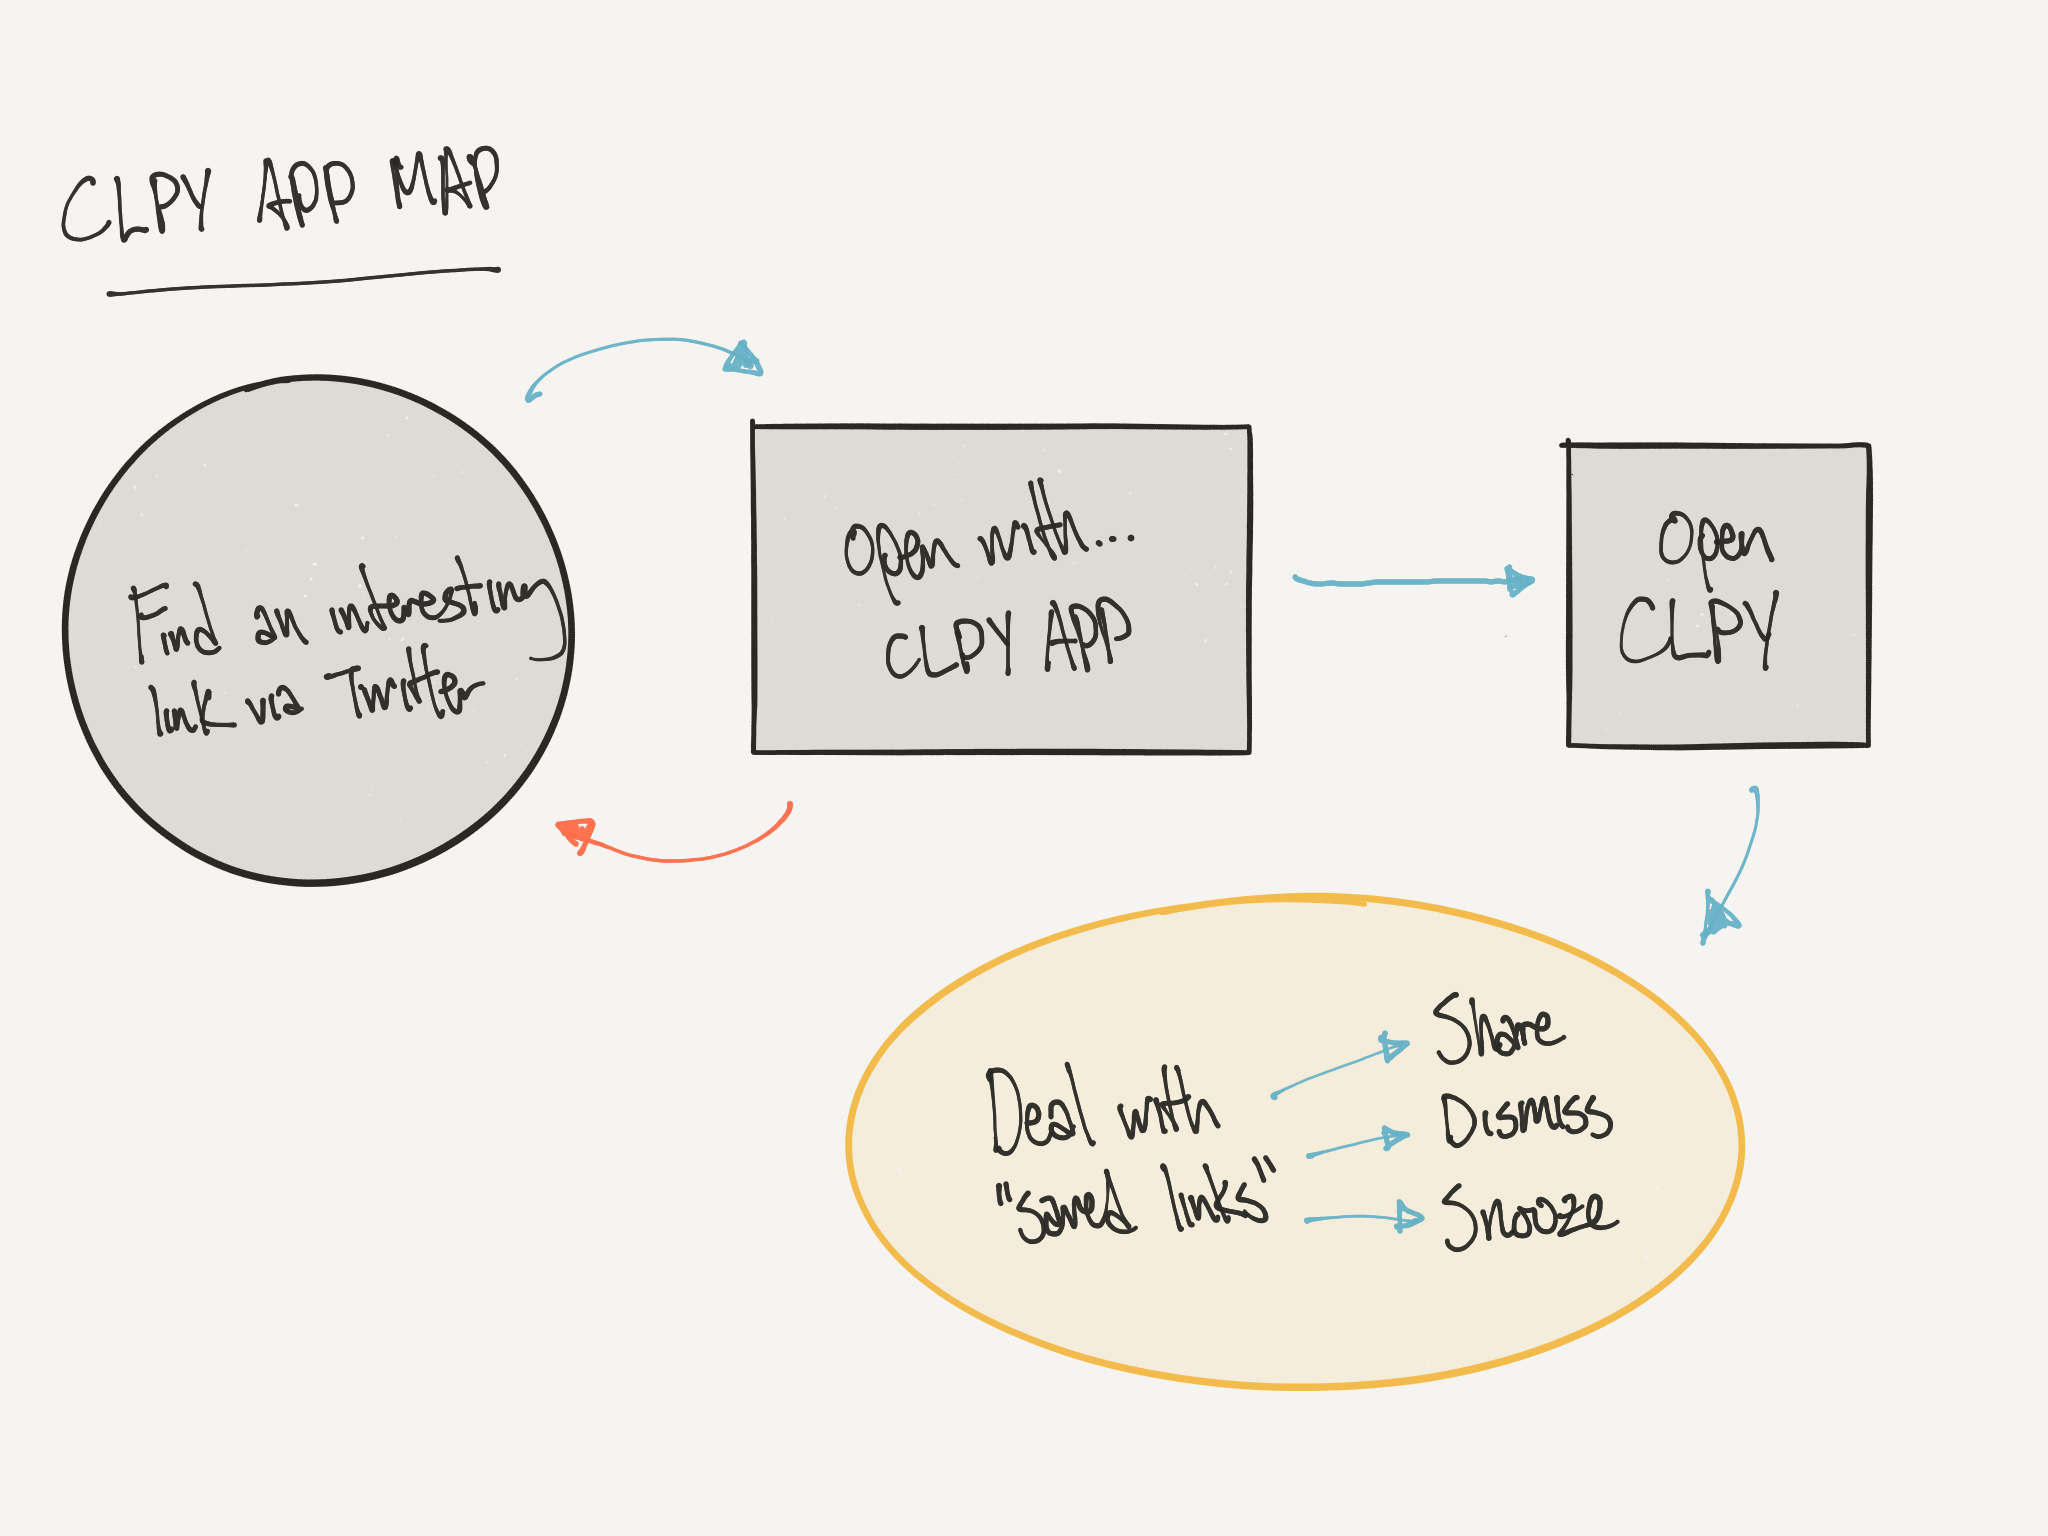 CLPY APP MAP
Find an interesting
link via Twitter
Open with...
CLPY APP
Open
CLPY
Deal with
"saved links"
Share
Dismiss
Snooze